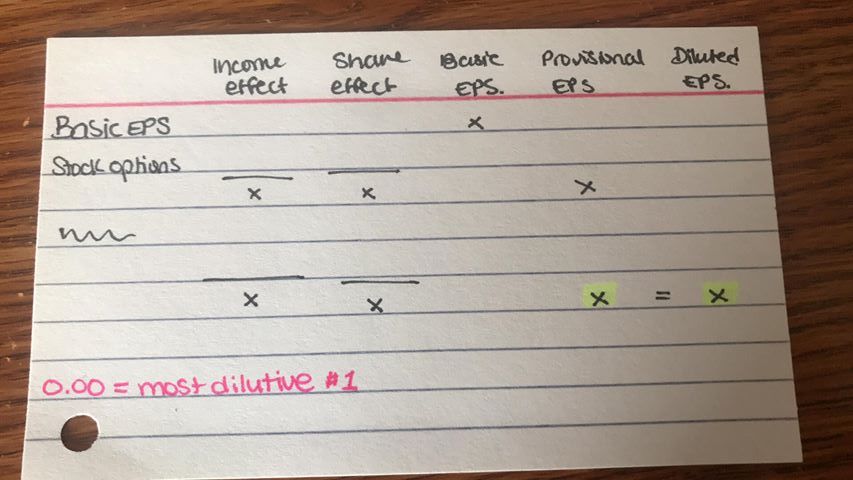 Income effect Share effect Basic EPS. Provisional EPS Diluted EPS.
Basic EPS x
Stock options
x x x
x x x = x
0.00 = most dilutive #1